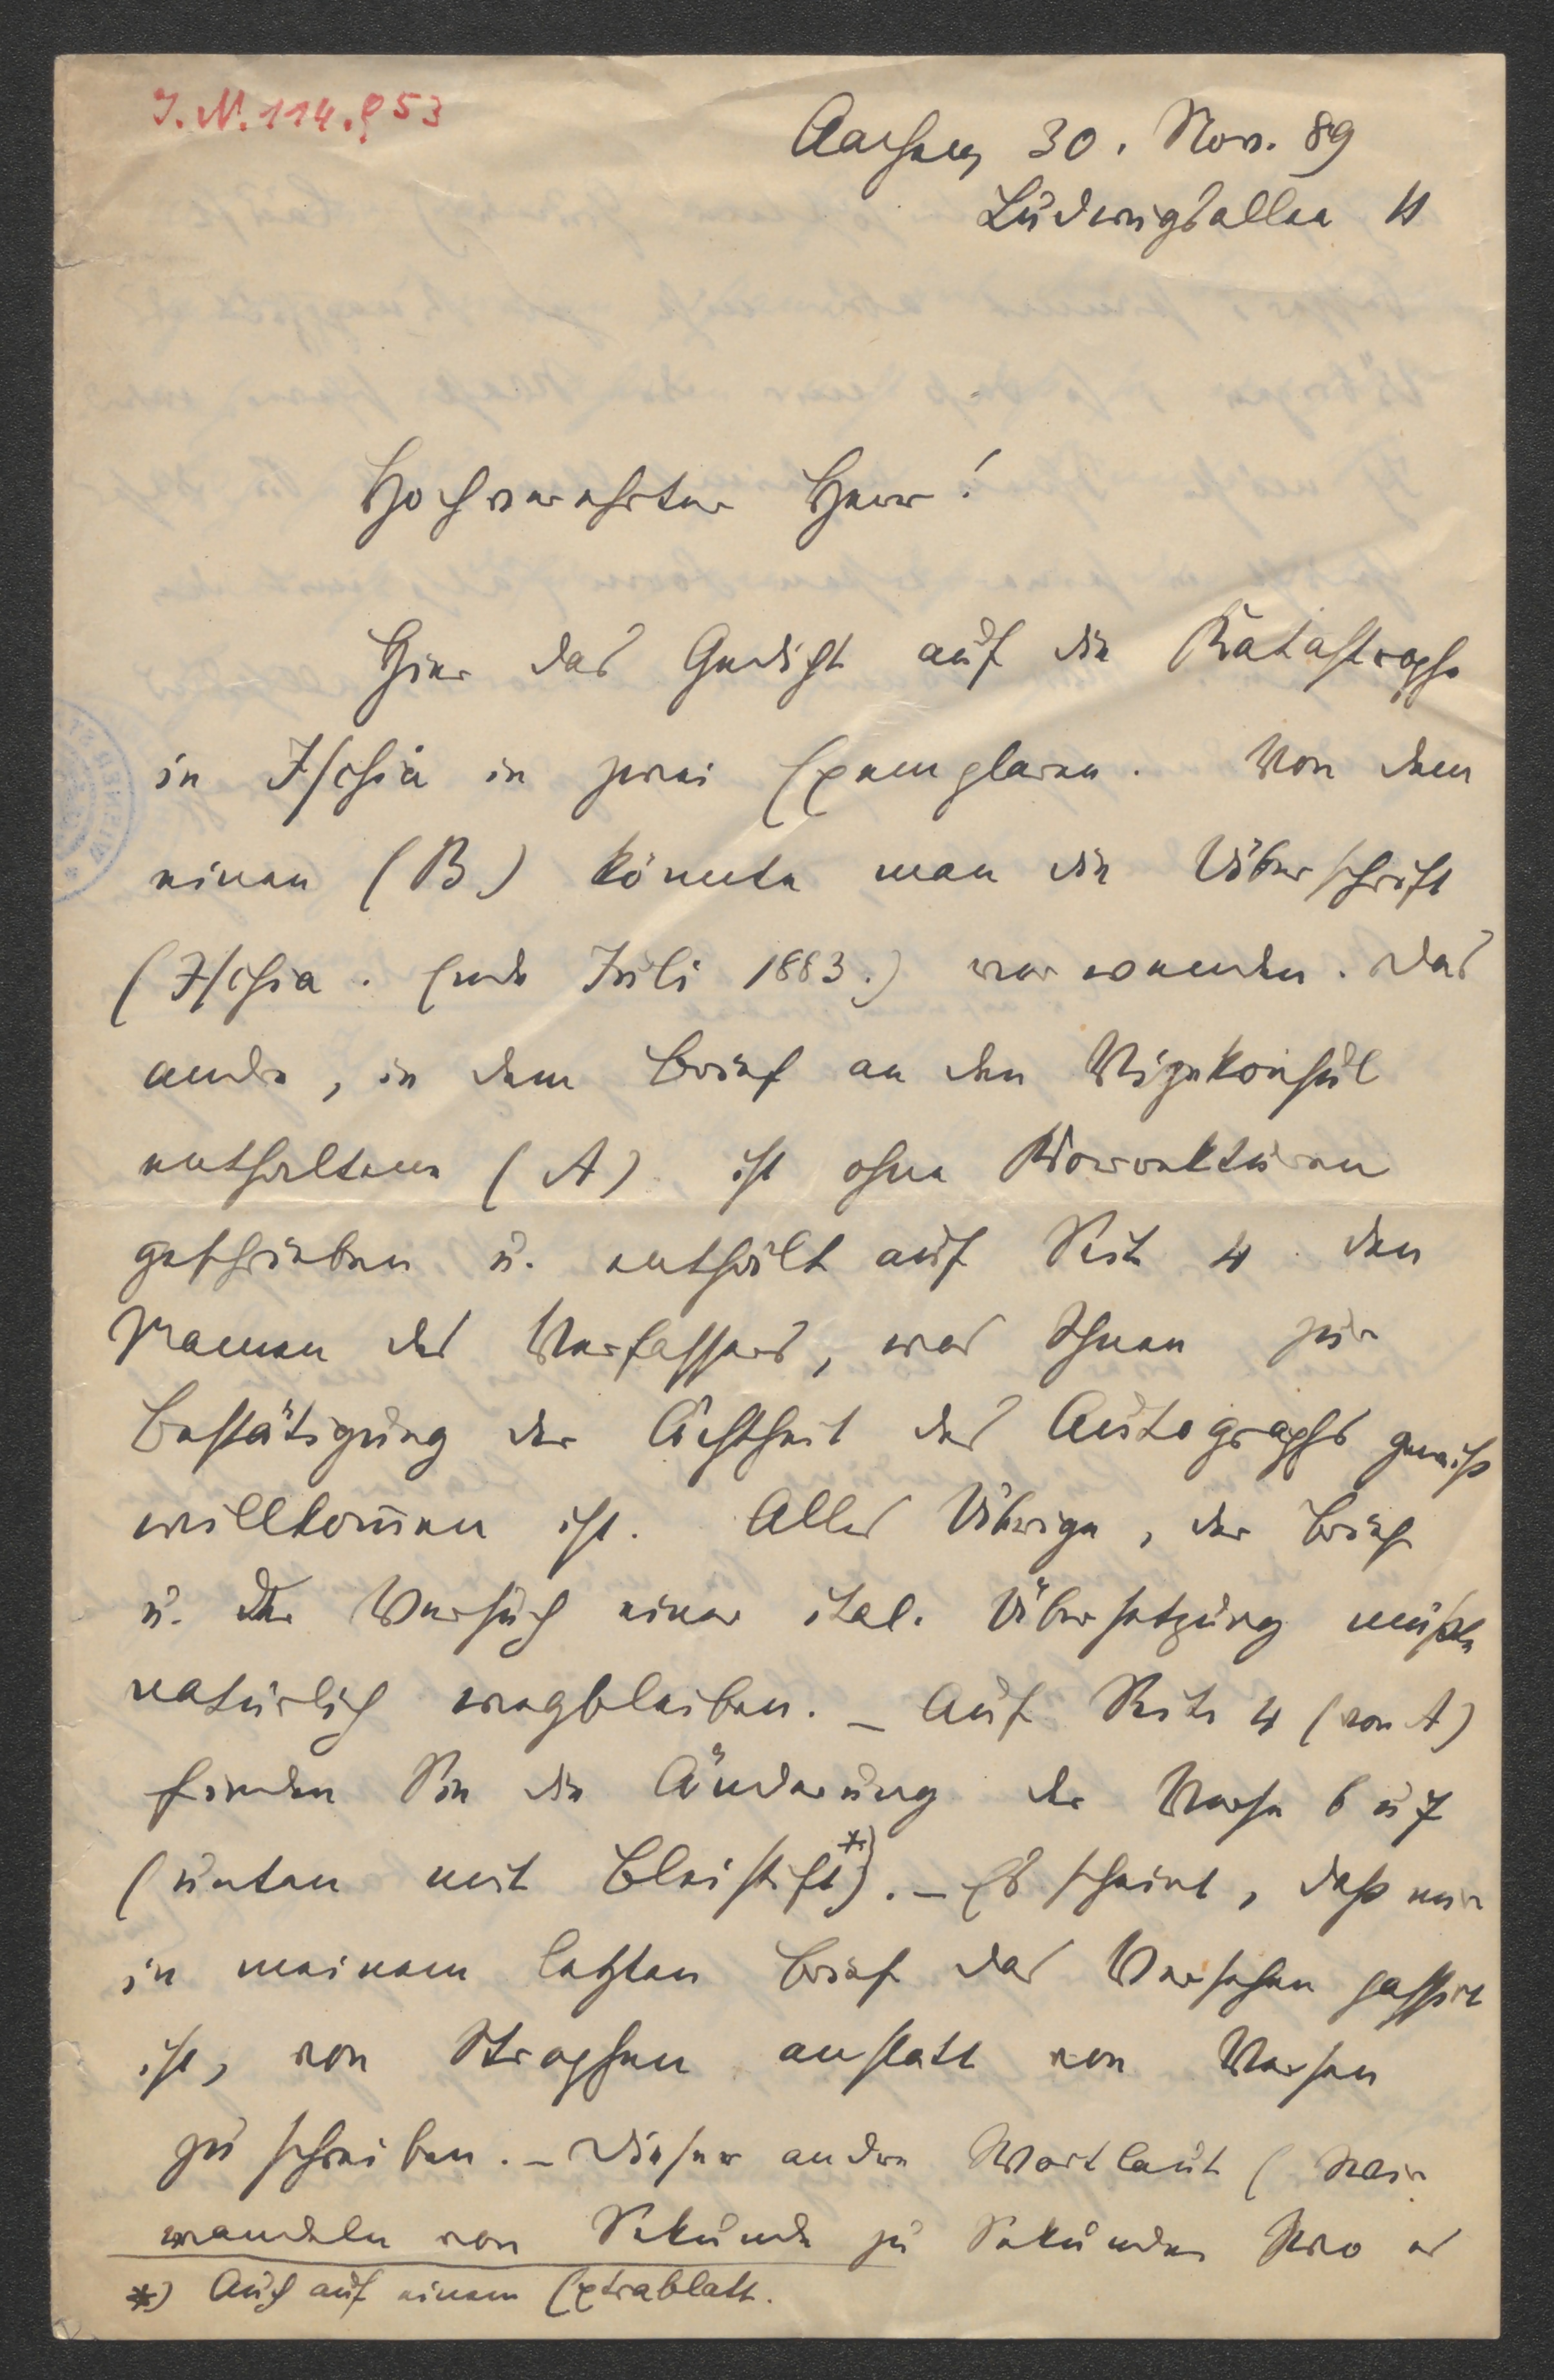 I. N. 114.953
Aachen, 30. Nov. 89
Ludwigsallee 11
Hochverehrter Herr!
Hier das Gedicht auf die Katastrophe
in Ischia in zwei Exemplaren. Von dem
einen (B) könnte man die Überschrift
(Ischia. Ende Juli 1883.) verwenden. Das
andre, in dem Brief an den Vizekonsul
enthaltene (A) ist ohne Korrekturen
geschrieben u. enthält auf Seite 4 den
Namen des Verfassers, was Ihnen zur
Bestätigung der Ächtheit des Autographs gewiß
willkom̅en ist. Alles Übrige, der Brief
u. der Versuch einer ital. Übersetzung müßte
natürlich wegbleiben. – Auf Seite 4 (von A)
finden Sie die Änderung der Verse 6 u 7
(unten mit Bleistift*)). – Es scheint, daß mir
in meinem letzten Brief das Versehen passirt
ist, von Strophen anstatt von Versen
zu schreiben. – Dieser andre Wortlaut (Wir
wandeln von Sekunde zu Sekunden Wo es
*) Auch auf einem Extrablatt.